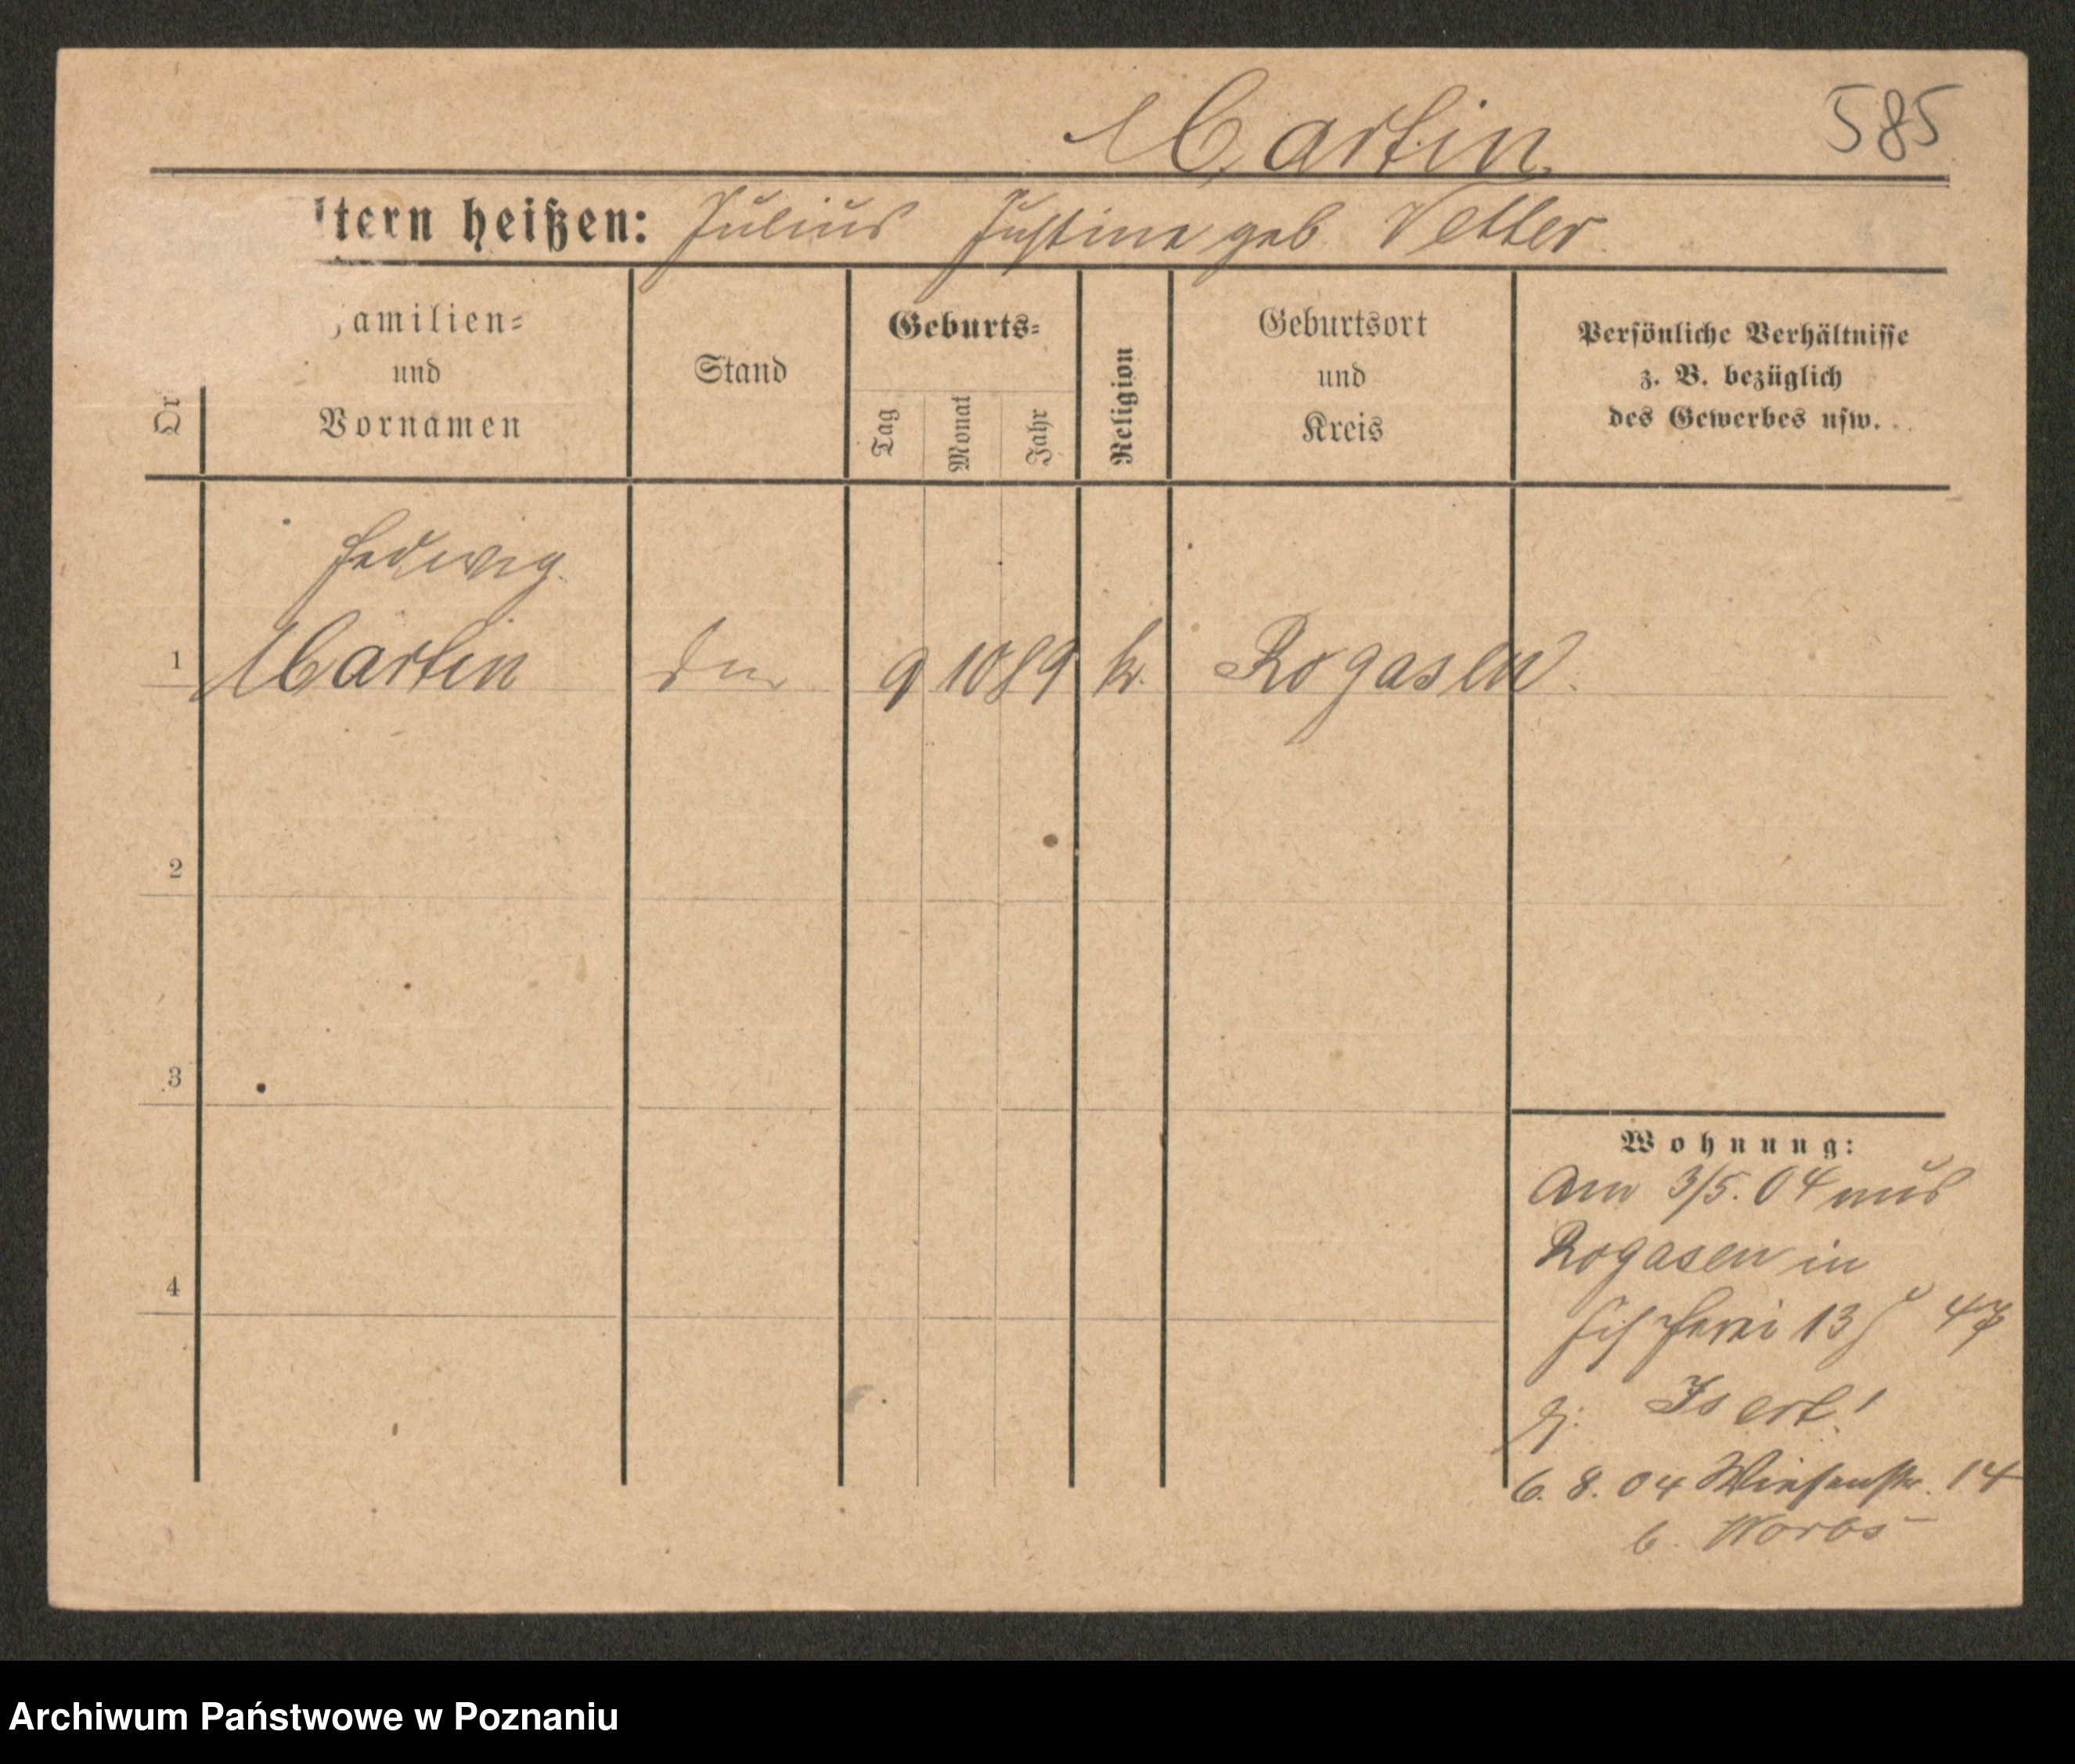 Martin 585
ltern heißen: Julius Justine geb Vetter.
amilien= und Vornamen
Stand
Geburts=
Tag Monat Jahr
Religion
Geburtsort und Kreis
Persönliche Verhältnisse
z. B. bezüglich
des Gewerbes usw.
Hedwig.
1 Martin 9 10 89 Rogasen.
2
3
4
Wohnung:
Am 3/5. 04 aus
Rogasen in
Fischerei 13
Isert!
6. 8. 04 Wiesenstr. 14
b. Worbs
Archiwum Państwowe w Poznaniu